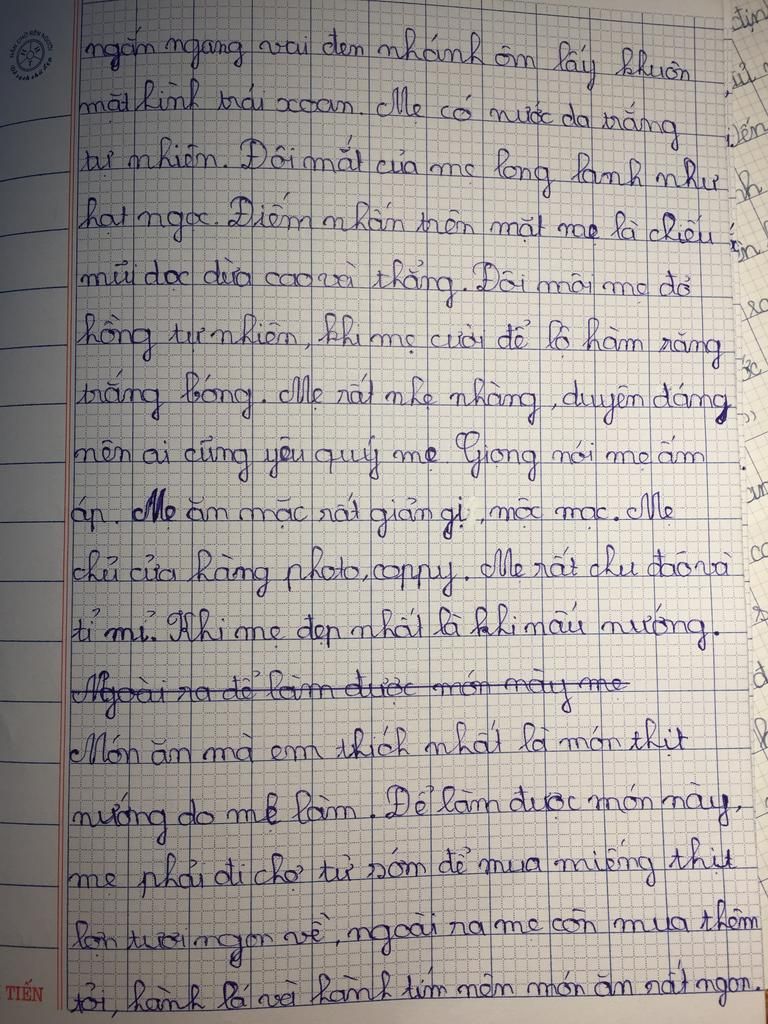 ngắn ngang vai đen nhánh ôm lấy khuôn
mặt hình trái xoan. Mẹ có nước da trắng
tự nhiên. Đôi mắt của mẹ long lanh như
hạt ngọc. Điểm nhấn trên mặt mẹ là chiếu
mũi dọc dừa cao và thẳng. Đôi môi mẹ đỏ
hồng tự nhiên, khi mẹ cười để lộ hàm răng
trắng bóng. Mẹ rất nhẹ nhàng, duyên dáng
nên ai cũng yêu quý mẹ. Giọng nói mẹ ấm
áp. Mẹ ăn mặc rất giản gị, mộc mạc. Mẹ
chủ cửa hàng photo, coppy. Mẹ rất chu đáo và
tỉ mỉ. Khi mẹ đẹp nhất là khi nấu nướng.
Ngoài ra để làm được món này mẹ
Món ăn mà em thích nhất là món thịt
nướng do mẹ làm. Để làm được món này,
mẹ phải đi chợ từ sớm để mua miếng thịt
lợn tươi ngon về, ngoài ra mẹ còn mua thêm
TIẾN tỏi, hành lá và hành tím nên món ăn rất ngon.